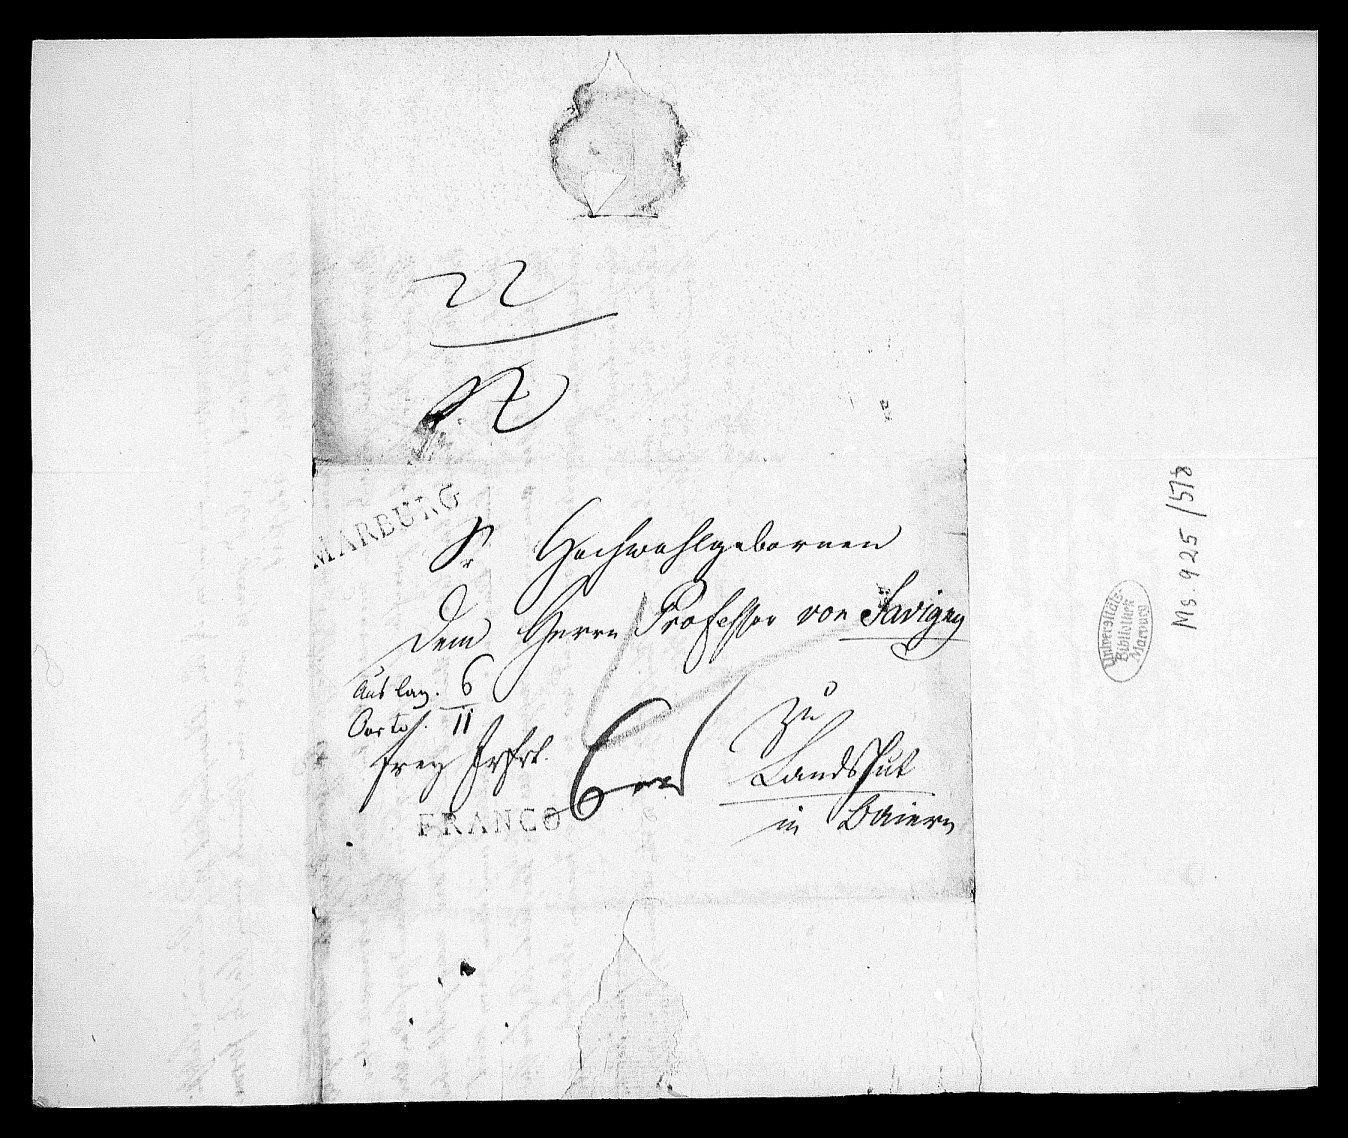 22
MARBURG
Sr Hochwohlgebornen
dem Herrn Professor von Savigny
Auslag. 6
Porto. 11
zu
frey Erfrt.
Landshut
FRANCO
in Baiern
Ms. 925/578
Universitäts-
Bibliothek
Marburg